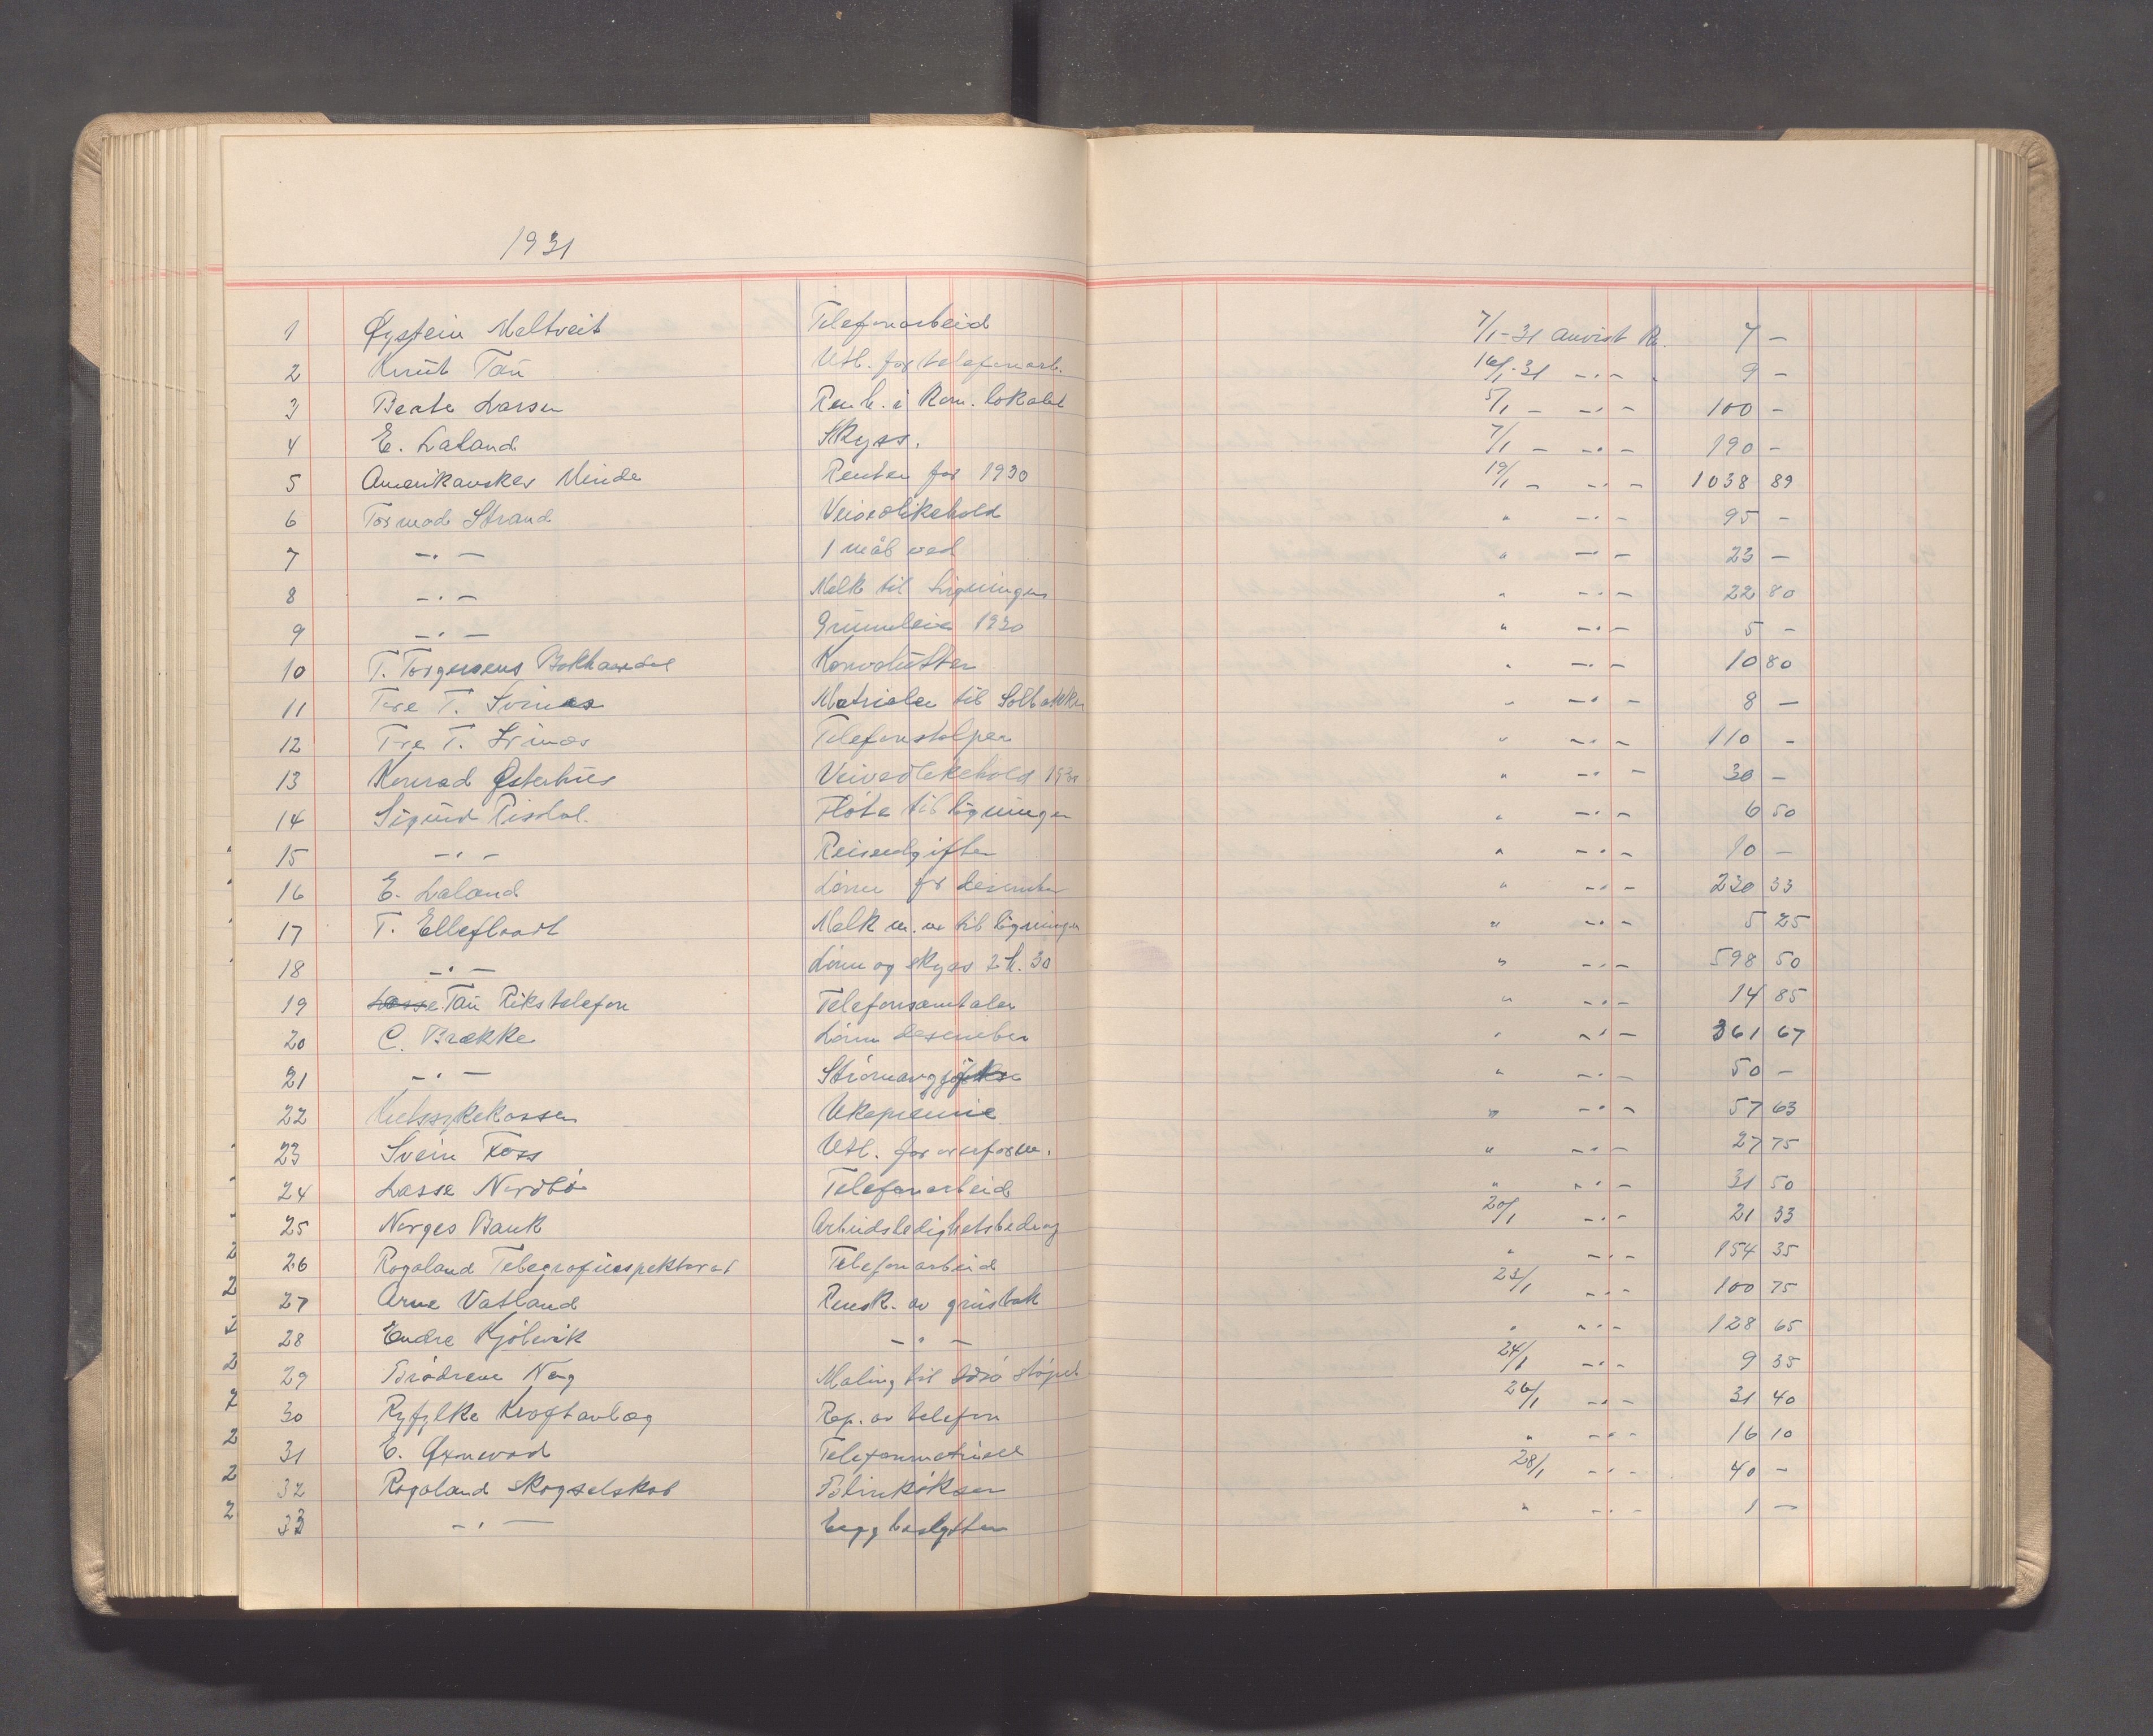 1931
1 Øystein Meltveit Telefonarbeid 7/1-31 anvist Kr. 7 –
2 Knut Tau Utb. for telefonarb. 16/1-31 –·– 9 –
3 Beate Larsen Renh. i Kom. lokalet 5/1 – –·– 100 –
4 E. Laland Skyss. 7/1 – –·– 190 –
5 Amerikanske Minde Renter for 1930 19/1 – –·– 1038 89
6 Tormod Strand Veivedlikehold " –·– 95 –
7 –·– 1 mål ved " –·– 23 –
8 –·– Melk til Ligningen " –·– 22 80
9 –·– Grunnleie 1930 " –·– 5 –
10 T. Torgersens Bokhandel Konvolutter " –·– 10 80
11 Tore T. Svines Matrialer til Solbakken " –·– 8 –
12 Tore T. Svines Telefonstolper " –·– 110 –
13 Konrad Østerhus Veivedlikehold 1930 " –·– 30 –
14 Sigurd Risdal. Fløte til ligningen " –·– 6 50
15 –·– Reiseutgifter " –·– 10 –
16 E. Laland Lønn for desember " –·– 230 33
17 T. Elleflaadt Melk m.m til ligningen " –·– 5 25
18 –·– Lønn og skyss 2 h. 30 " –·– 598 50
19 Lasse Tau Rikstelefon Telefonsamtaler " –·– 14 85
20 C. Brække Lønn desember " –·– 361 67
21 –·– " –·– 50 –
22 Kretssykekassen Ukepremie " –·– 57 63
23 Svein Foss Utb. for " –·– 27 75
24 Lasse Nordbø Telefonarbeid " –·– 31 50
25 Norges Bank Arbeidsledighetsbedrag 20/1 –·– 21 33
26 Rogaland Telegrafinspektorat Telefonarbeid " –·– 154 35
27 Arne Vatland Rensk. av grustak 23/1 –·– 100 75
28 Endre Kjølevik –·– " –·– 128 65
29 Brødrene Nag Maling til Idsø støpet 24/1 –·– 9 35
30 Ryfylke Kraftanlæg Rep. av telefon 26/1 –·– 31 40
31 E. Øxnevad Telefonmatriell " –·– 16 10
32 Rogaland Skogselskab Blinkøkser 28/1 –·– 40 –
33 –·– " –·– 1 –